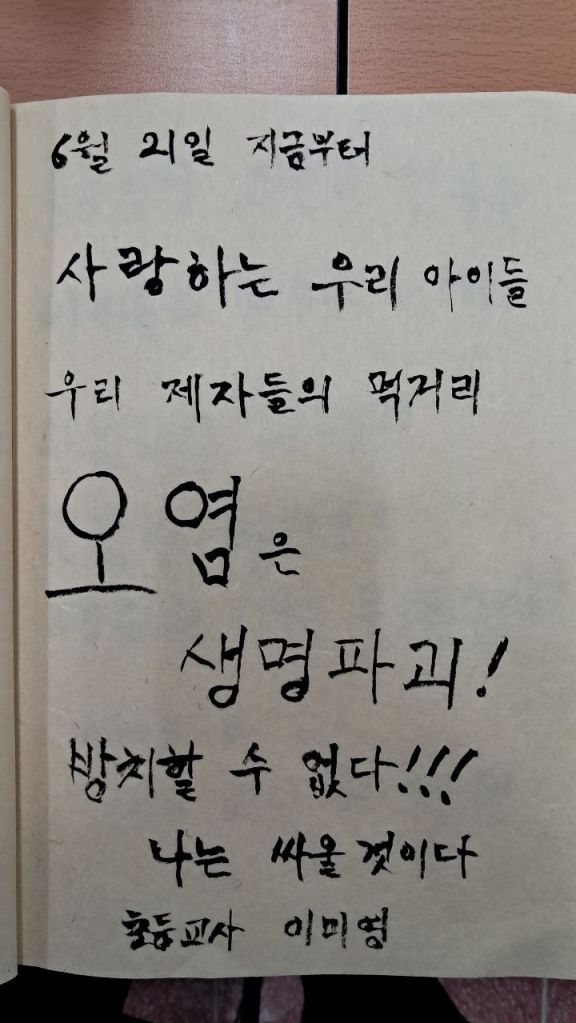 6월 21일 지금부터
사랑하는 우리 아이들
우리 제자들의 먹거리
오염은
생명파괴!
방치할 수 없다!!!
나는 싸울것이다
초등교사 이미영